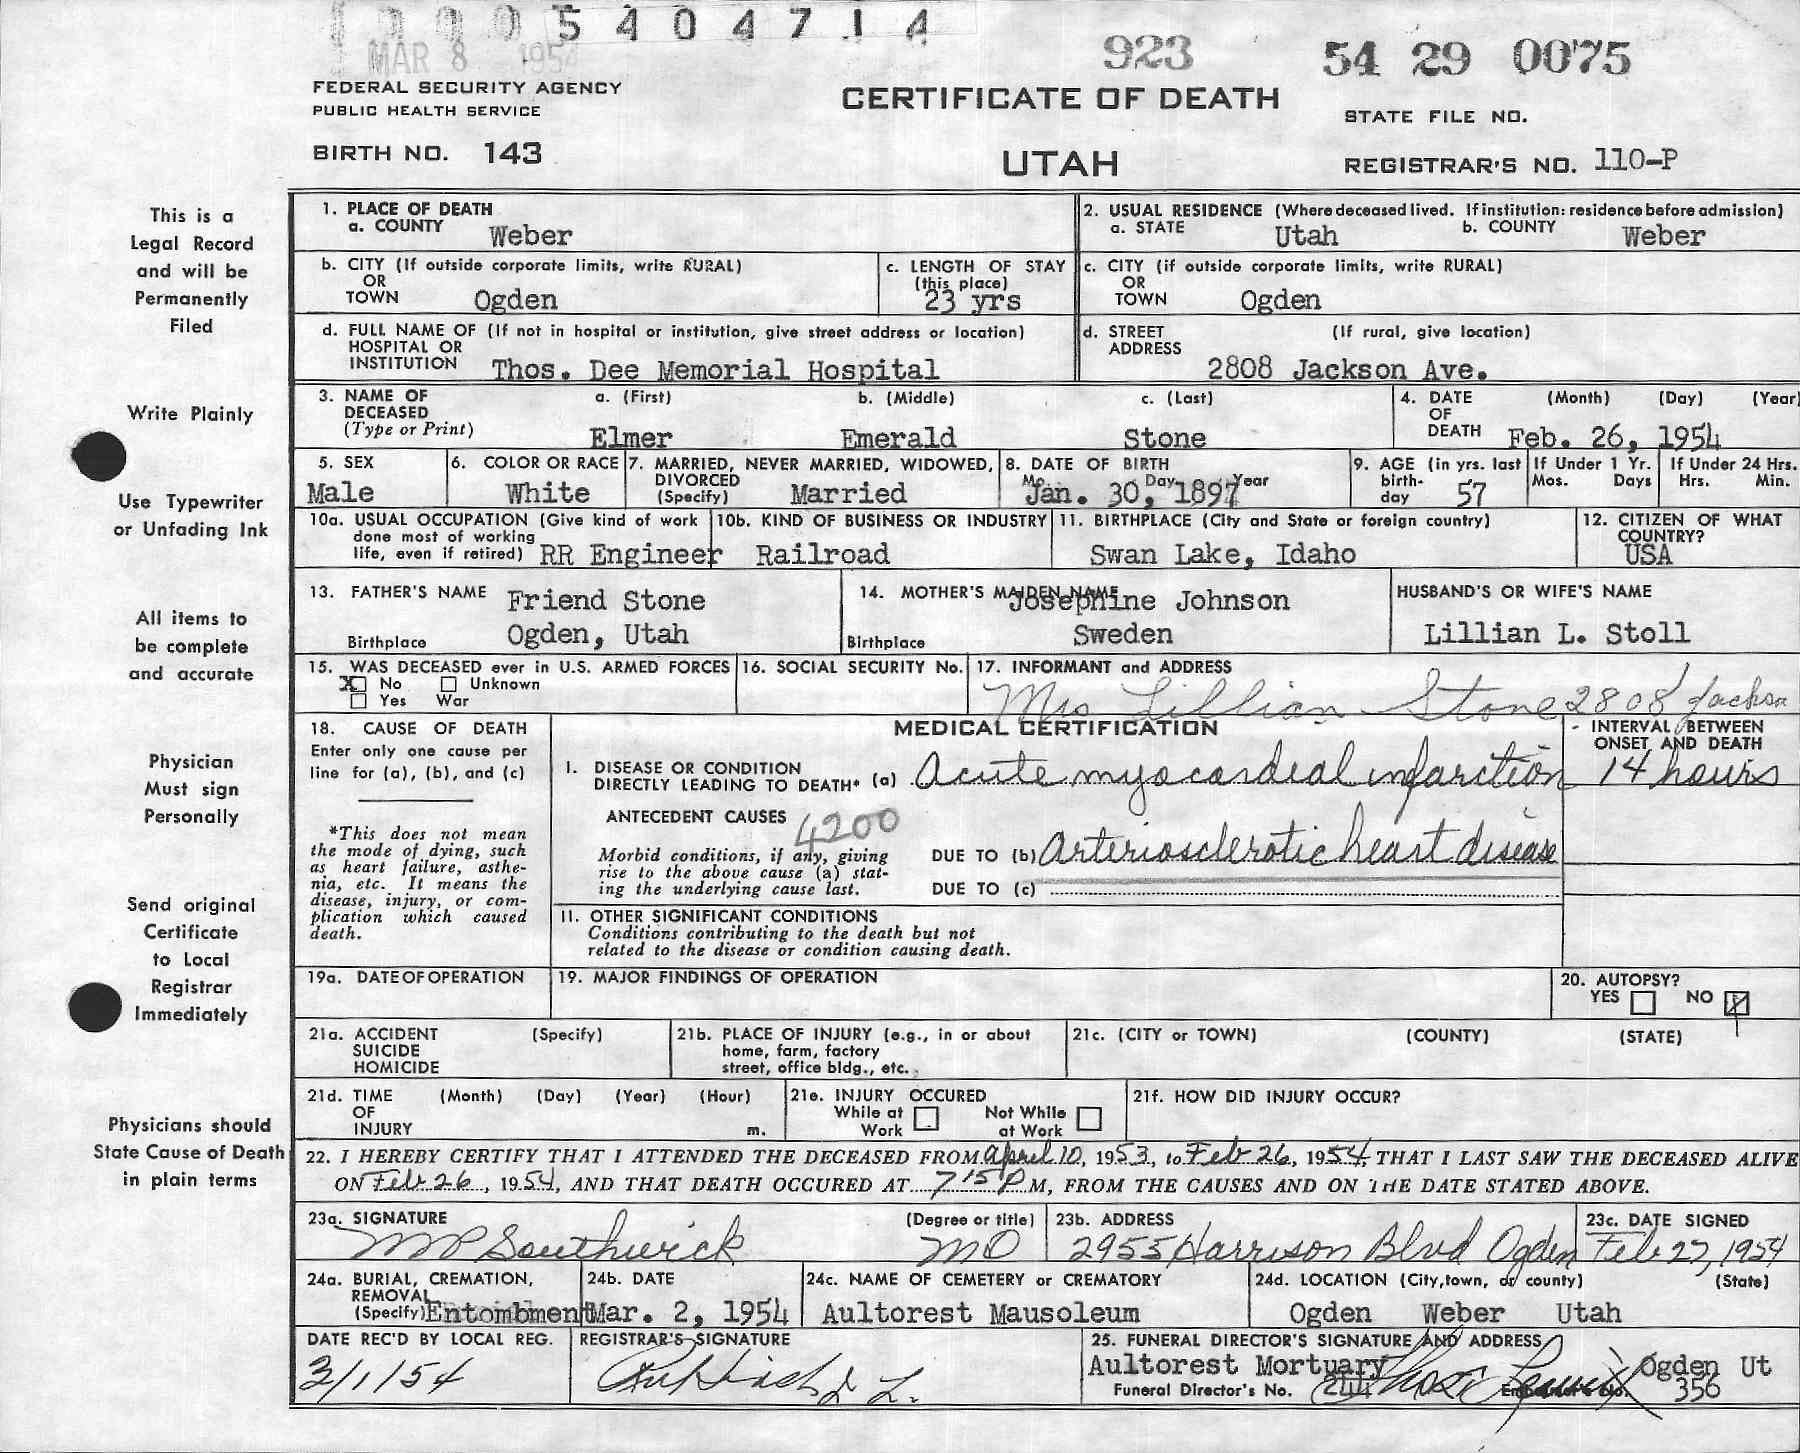 5 4 0 4 7 1 4
MAR 8 195
923
54 29 0075
FEDERAL SECURITY AGENCY
PUBLIC HEALTH SERVICE
CERTIFICATE OF DEATH
STATE FILE NO.
BIRTH NO. 143
UTAH
REGISTRAR'S NO. 110-P
This is a
Legal Record
and will be
Permanently
Filed
Write Plainly
Use Typewriter
or Unfading Ink
All items to
be complete
and accurate
Physician
Must sign
Personally
Send original
Certificate
to Local
Registrar
Immediately
Physicians should
State Cause of Death
in plain terms
1. PLACE OF DEATH
a. COUNTY Weber
2. USUAL RESIDENCE (Where deceased lived. If institution: residence before admission)
a. STATE Utah b. COUNTY Weber
b. CITY (If outside corporate limits, write RURAL)
OR
TOWN Ogden
c. LENGTH OF STAY
(this place)
23 yrs
c. CITY (if outside corporate limits, write RURAL)
OR
TOWN Ogden
d. FULL NAME OF (If not in hospital or institution, give street address or location)
HOSPITAL OR
INSTITUTION Thos. Dee Memorial Hospital
d. STREET (If rural, give location)
ADDRESS
2808 Jackson Ave.
3. NAME OF
DECEASED
(Type or Print)
a. (First) b. (Middle) c. (Last)
Elmer Emerald Stone
4. DATE (Month) (Day) (Year)
OF
DEATH Feb. 26, 1954
5. SEX
Male
6. COLOR OR RACE
White
7. MARRIED, NEVER MARRIED, WIDOWED,
DIVORCED
(Specify) Married
8. DATE OF BIRTH
Mo. Day Year
Jan. 30, 1897
9. AGE (in yrs. last
birth-
day 57
If Under 1 Yr.
Mos. Days
If Under 24 Hrs.
Hrs. Min.
10a. USUAL OCCUPATION (Give kind of work
done most of working
life, even if retired) RR Engineer
10b. KIND OF BUSINESS OR INDUSTRY
Railroad
11. BIRTHPLACE (City and State or foreign country)
Swan Lake, Idaho
12. CITIZEN OF WHAT
COUNTRY?
USA
13. FATHER'S NAME Friend Stone
Birthplace Ogden, Utah
14. MOTHER'S MAIDEN NAME Josephine Johnson
Birthplace Sweden
HUSBAND'S OR WIFE'S NAME
Lillian L. Stoll
15. WAS DECEASED ever in U.S. ARMED FORCES
X No Unknown
Yes War
16. SOCIAL SECURITY No.
17. INFORMANT and ADDRESS
Mrs Lillian Stone 2808 Jackson
18. CAUSE OF DEATH
Enter only one cause per
line for (a), (b), and (c)
*This does not mean
the mode of dying, such
as heart failure, asthe-
nia, etc. It means the
disease, injury, or com-
plication which caused
death.
MEDICAL CERTIFICATION
INTERVAL BETWEEN
ONSET AND DEATH
I. DISEASE OR CONDITION
DIRECTLY LEADING TO DEATH* (a) Acute myocardial infarction 14 hours
ANTECEDENT CAUSES 4200
Morbid conditions, if any, giving
rise to the above cause (a) stat-
ing the underlying cause last.
DUE TO (b) Arteriosclerotic heart disease
DUE TO (c)
II. OTHER SIGNIFICANT CONDITIONS
Conditions contributing to the death but not
related to the disease or condition causing death.
19a. DATE OF OPERATION
19. MAJOR FINDINGS OF OPERATION
20. AUTOPSY?
YES NO
21a. ACCIDENT (Specify)
SUICIDE
HOMICIDE
21b. PLACE OF INJURY (e.g., in or about
home, farm, factory
street, office bldg., etc.
21c. (CITY or TOWN) (COUNTY) (STATE)
21d. TIME (Month) (Day) (Year) (Hour)
OF
INJURY m.
21e. INJURY OCCURED
While at Work
Not While at Work
21f. HOW DID INJURY OCCUR?
22. I HEREBY CERTIFY THAT I ATTENDED THE DECEASED FROM April 10, 1953, to Feb 26, 1954, THAT I LAST SAW THE DECEASED ALIVE
ON Feb 26, 1954, AND THAT DEATH OCCURED AT 7 15 P M, FROM THE CAUSES AND ON THE DATE STATED ABOVE.
23a. SIGNATURE (Degree or title)
Southwick MD
23b. ADDRESS
2955 Harrison Blvd Ogden
23c. DATE SIGNED
Feb 27, 1954
24a. BURIAL, CREMATION,
REMOVAL
(Specify) Entombment
24b. DATE
Mar. 2, 1954
24c. NAME OF CEMETERY or CREMATORY
Aultorest Mausoleum
24d. LOCATION (City, town, or county) (State)
Ogden Weber Utah
DATE REC'D BY LOCAL REG.
3/1/54
REGISTRAR'S SIGNATURE
25. FUNERAL DIRECTOR'S SIGNATURE AND ADDRESS
Aultorest Mortuary Ogden Ut
Funeral Director's No. 356